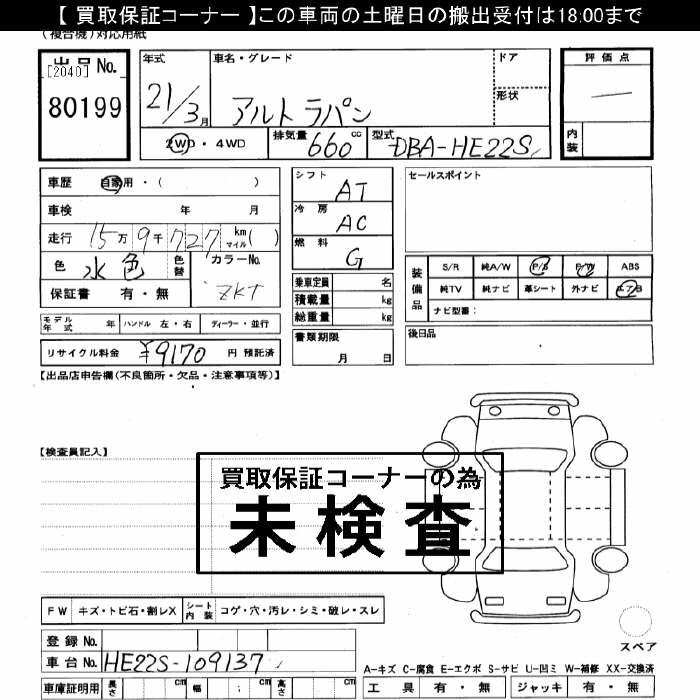 【 買取保証コーナー 】この車両の土曜日の搬出受付は18:00まで
(複合機)対応用紙
出品No.
[2040]
80199
年式
21/3月
車名・グレード
アルト ラパン
ドア
形状
評価点
内装
2WD・4WD
排気量 660 cc
型式 DBA-HE22S
車歴 自家用・( )
車検 年 月
走行 15万9千727 km マイル( )
色 水色 色替
カラーNo. ZKT
保証書 有・無
シフト AT
冷房 AC
燃料 G
乗車定員 名
積載量 kg
総重量 kg
セールスポイント
装備品
S/R 純A/W P/S P/W ABS
純TV 純ナビ 革シート 外ナビ エアB
ナビ型番:
モデル年式 年 ハンドル 左・右 ディーラー・並行
リサイクル料金 ¥9170 円 預託済
書類期限 月 日
後日品
【出品店申告欄(不良箇所・欠品・注意事項等)】
【検査員記入】
買取保証コーナーの為
未検査
FW キズ・トビ石・割レX シート内装 コゲ・穴・汚レ・シミ・破レ・スレ
登録No.
車台No. HE22S-109137
車庫証明用 長さ cm 幅 cm 高さ cm
スペア
A-キズ C-腐食 E-エクボ S-サビ U-凹ミ W-補修 XX-交換済
工具 有・無 ジャッキ 有・無